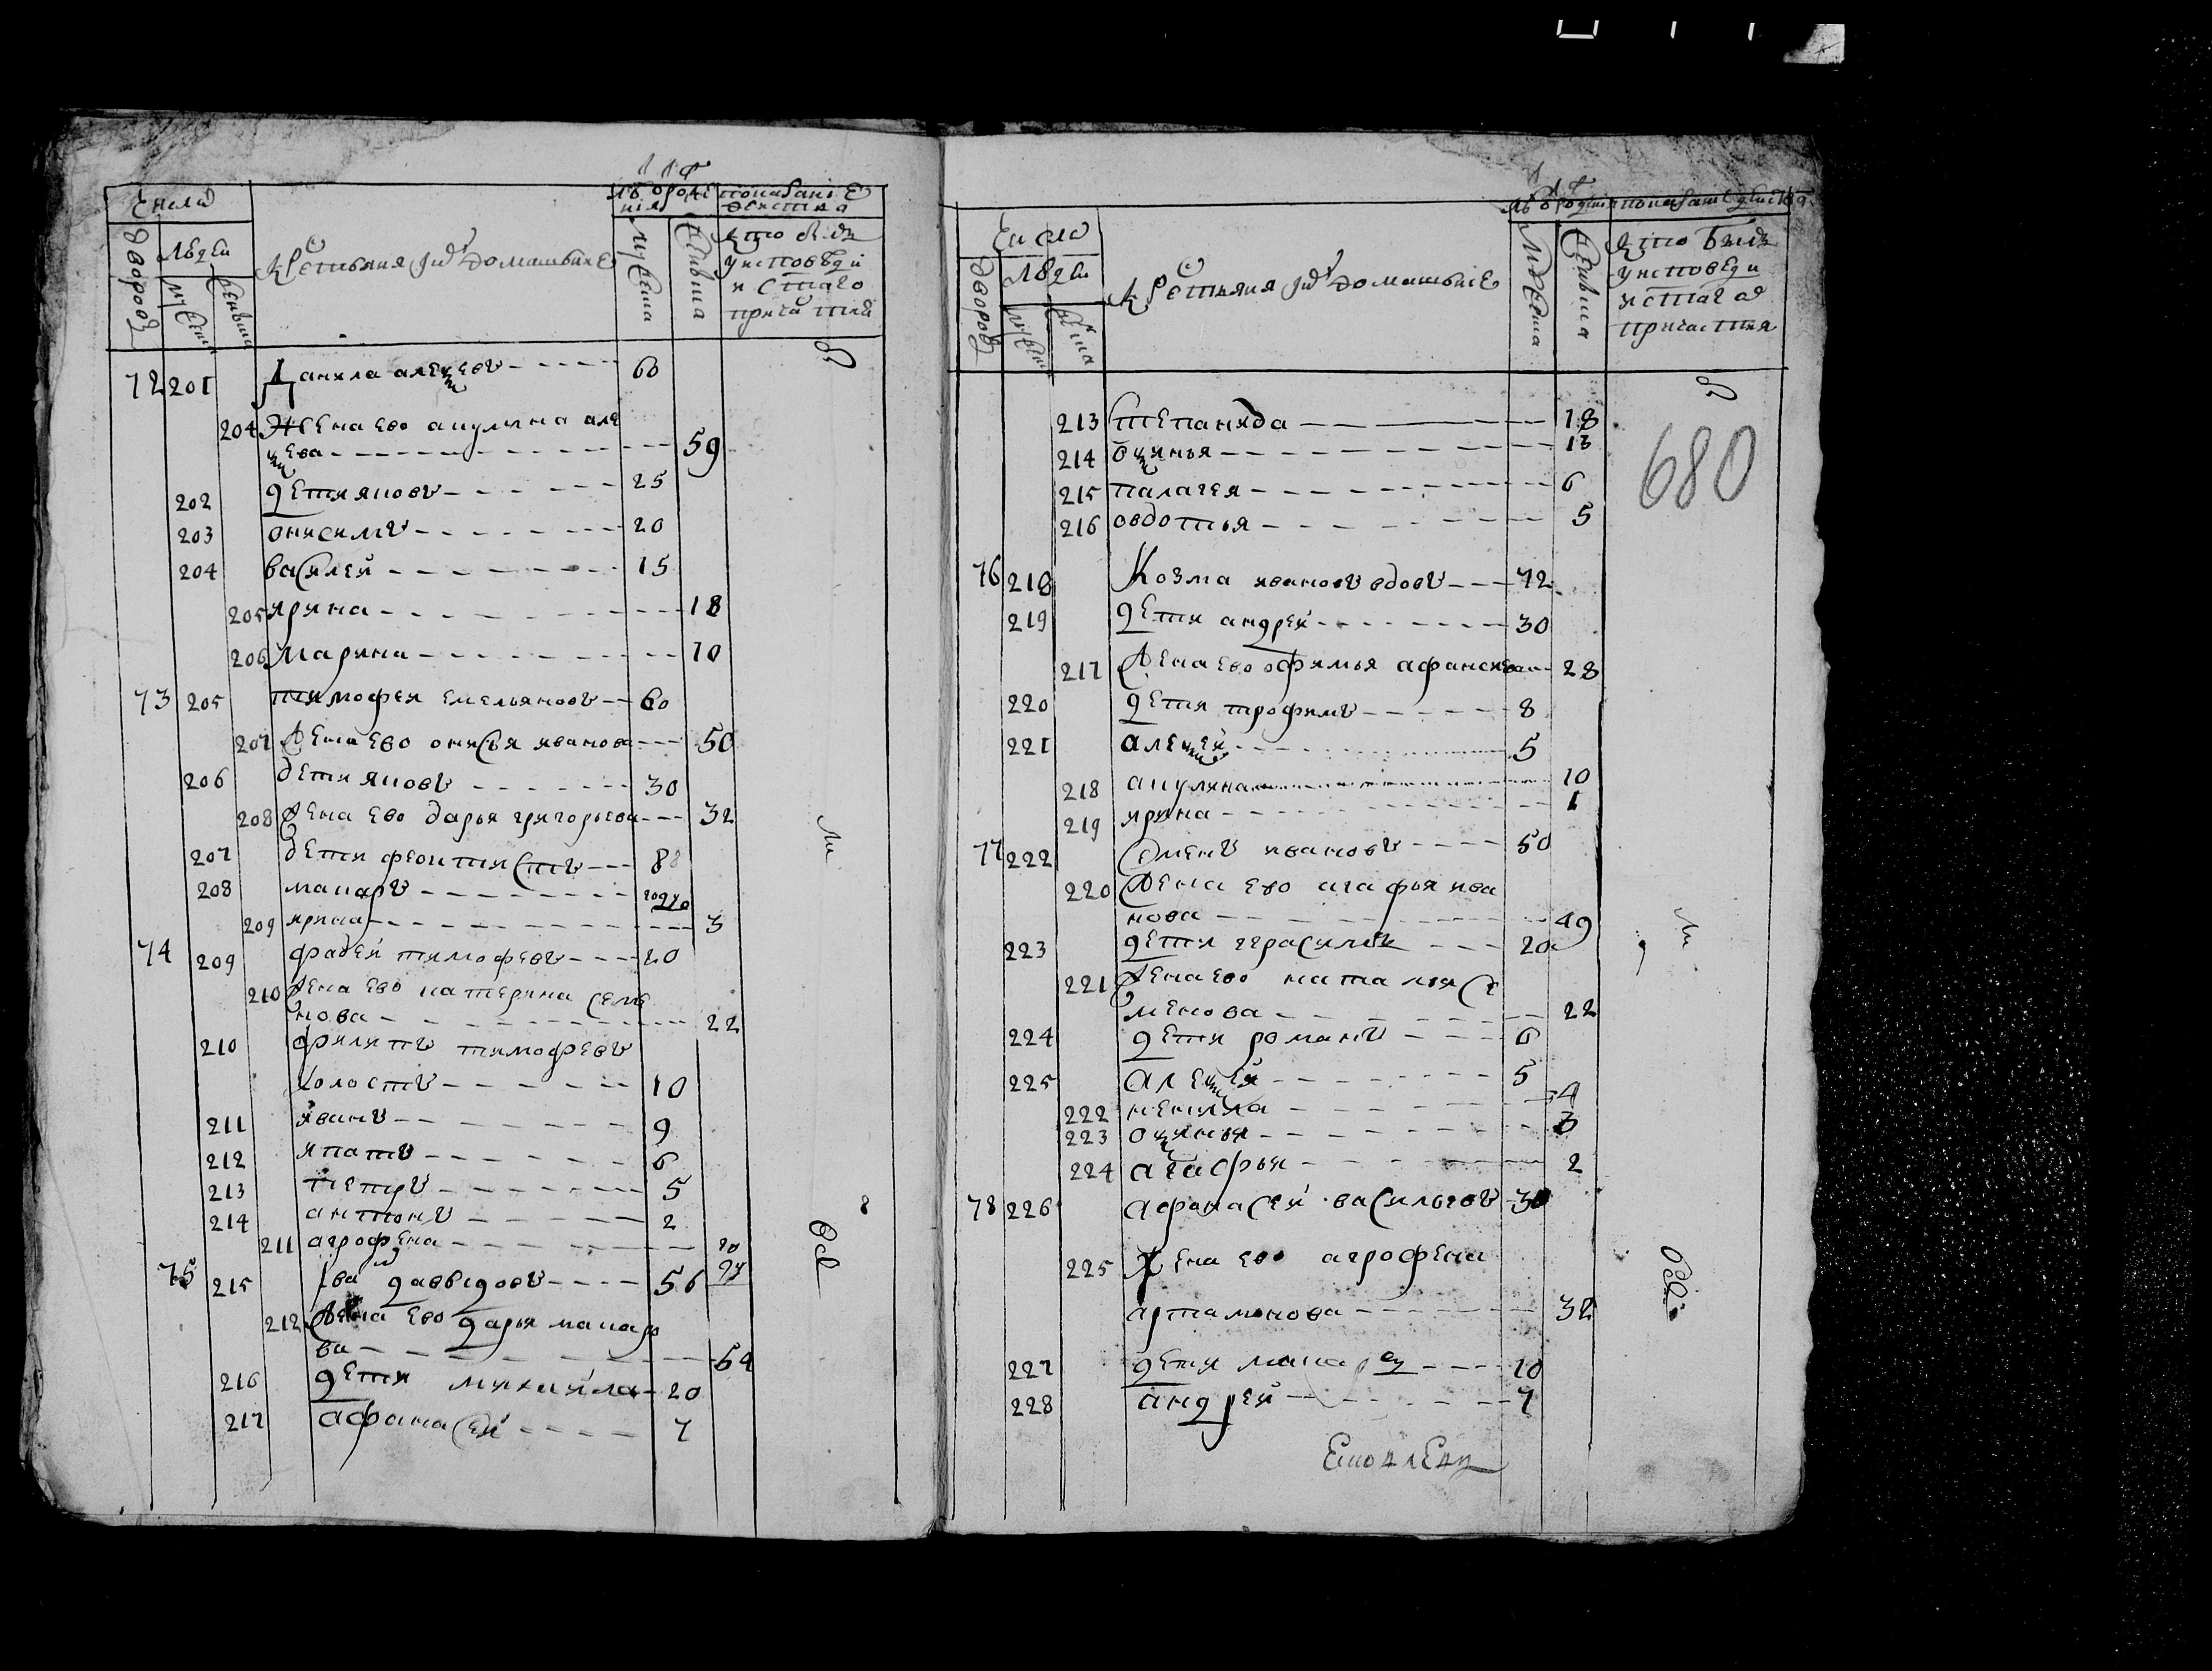 Числа
Дворов
Людей
Мужеска
Женска
Крестьяня и их домашьние
Лѣта отрожде
ния
Мужеска
Женьска
показание
действа
кто былъ
у исповѣди
и стаго
причастия
72 201 Данила алексеевъ 60
204 Жена ево акулина але
ксева 59
202 дети яковъ 25
203 онисимъ 20
204 василей 15
205 ярина 18
206 марина 10
73 205 тимофей емельяновъ 60
207 Жена ево онисья иванова 50
206 дети яковъ 30
208 Жена ево дарья григорьева 32
207 дети феоктистъ 8
208 макаръ году
209 ярина 3
74 209 фадей тимофевъ 20
210 Жена ево катерина семе
нова 22
210 филипъ тимофевъ
холостъ 10
211 иванъ 9
212 ипатъ 6
213 петръ 5
214 антонъ 2
211 агрофена году
75 215 Iва давыдовъ 56
212 Жена ево дарья макаро
ва 54
216 дети михаила 20
217 афанасей 7
бы
ли
все
Числа
Дворов
Людей
Мужеска
Женска
Крестьяня и их домашьние
Лѣта отрождения
Мужеска
Женьска
показание действа
кто былъ
у исповѣди
и стаго
причастия
680
213 степанида 18
214 оксинья 13
215 палагея 6
216 овдотья 5
76 218 Козма ивановъ вдовъ 72
219 дети андрей 30
217 Жена ево офимья афансиева 28
220 дети трофимъ 8
221 алексей 5
218 акулина 10
219 ярина 1
77 222 Семенъ ивановъ 50
220 Жена ево агафья ива
нова 49
223 дети герасимъ 20
221 Жена ево наталья се
менова 22
224 дети романъ 6
225 алексей 5
222 ненила 4
223 оксинья 3
224 агафья 2
78 226 афонасей васильевъ 30
225 Жена ево агрофена
артамонова 32
227 дети макаръ 10
228 андрей 7
бы
ли
все